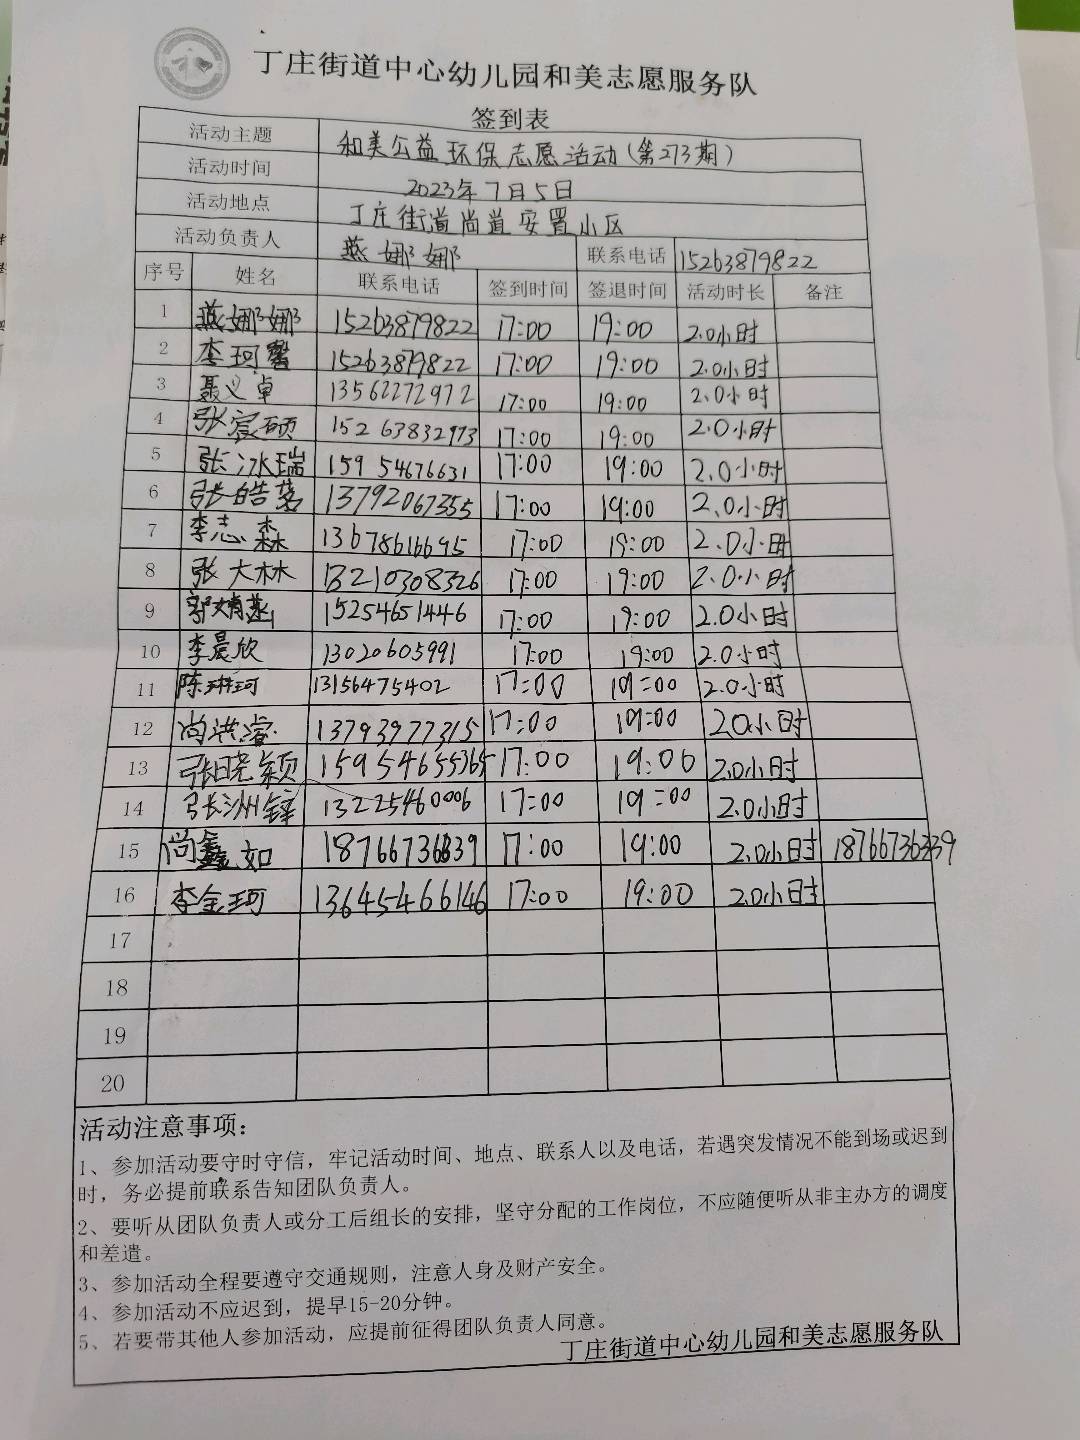 丁庄街道中心幼儿园和美志愿服务队
签到表
活动主题 和美公益环保志愿活动(第273期)
活动时间 2023年7月5日
活动地点 丁庄街道尚道安置小区
活动负责人 燕娜娜 联系电话 15263879822
序号 姓名 联系电话 签到时间 签退时间 活动时长 备注
1 燕娜娜 15263879822 17:00 19:00 2.0小时
2 李珂馨 15263879822 17:00 19:00 2.0小时
3 聂义卓 13562272972 17:00 19:00 2.0小时
4 张宸硕 15263832973 17:00 19:00 2.0小时
5 张冰瑞 15954676631 17:00 19:00 2.0小时
6 张皓茗 13792067355 17:00 19:00 2.0小时
7 李志森 13678616695 17:00 19:00 2.0小时
8 张大林 13210308326 17:00 19:00 2.0小时
9 郭娟燕 15254651446 17:00 19:00 2.0小时
10 李晨欣 13020605991 17:00 19:00 2.0小时
11 陈琳珂 13156475402 17:00 19:00 2.0小时
12 尚洪睿 13793977315 17:00 19:00 2.0小时
13 张晓颖 15954655365 17:00 19:00 2.0小时
14 张洲锌 13225460006 17:00 19:00 2.0小时
15 尚鑫如 17:00 19:00 2.0小时 18766736339
16 李金珂 13645466146 17:00 19:00 2.0小时
17
18
19
20
活动注意事项：
1、参加活动要守时守信，牢记活动时间、地点、联系人以及电话，若遇突发情况不能到场或迟到
时，务必提前联系告知团队负责人。
2、要听从团队负责人或分工后组长的安排，坚守分配的工作岗位，不应随便听从非主办方的调度
和差遣。
3、参加活动全程要遵守交通规则，注意人身及财产安全。
4、参加活动不应迟到，提早15-20分钟。
5、若要带其他人参加活动，应提前征得团队负责人同意。
丁庄街道中心幼儿园和美志愿服务队